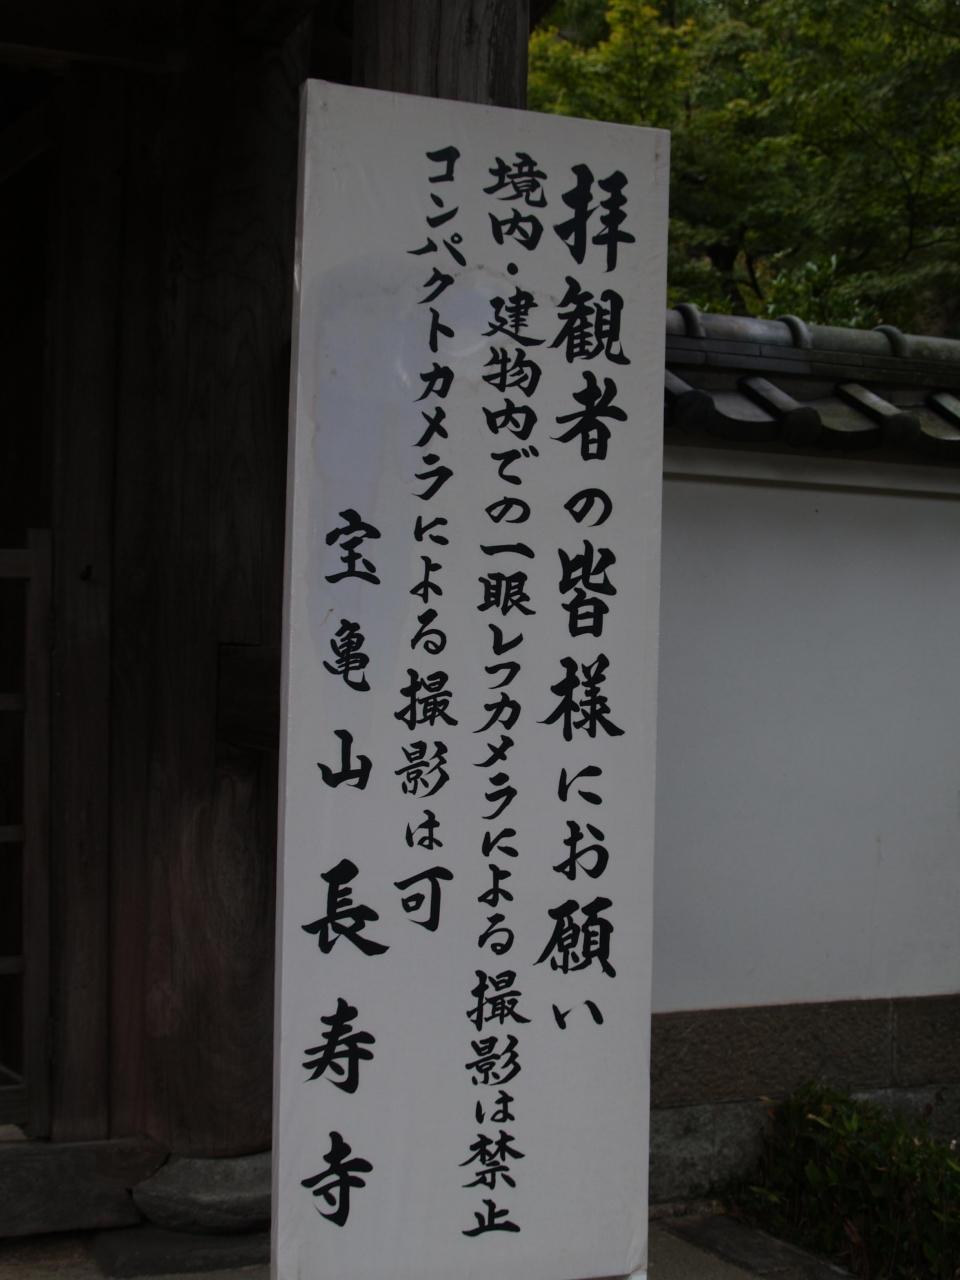 拝観者の皆様にお願い
境内・建物内での一眼レフカメラによる撮影は禁止
コンパクトカメラによる撮影は可
宝亀山長寿寺